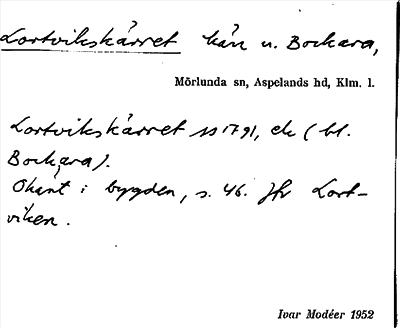 Lortvikskärret kärr u. Bockara,
Mörlunda sn, Aspelands hd, Klm. l.
Lortvikskärret ss 1791, ck (bl.
Bockara).
Okänt i bygden, s. 46. Jfr Lort-
viken.
Ivar Modéer 1952